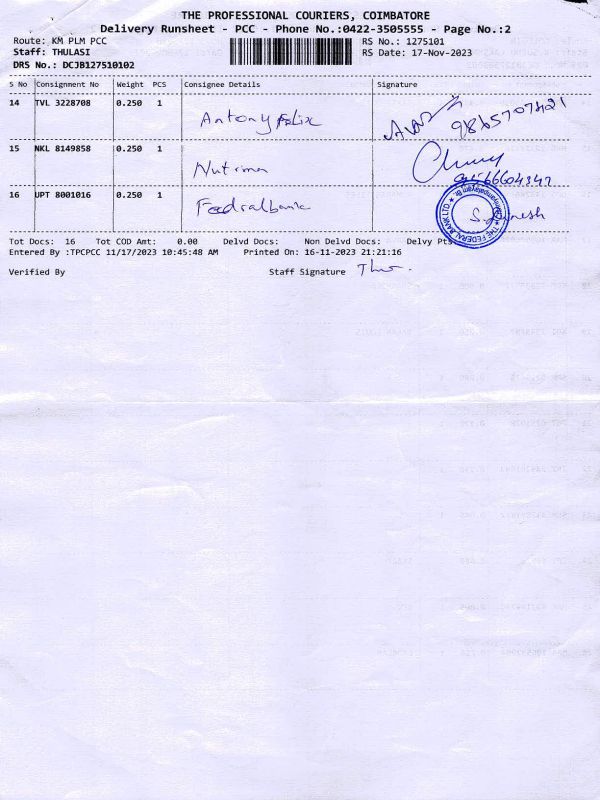 THE PROFESSIONAL COURIERS, COIMBATORE
Delivery Runsheet - PCC - Phone No.:0422-3505555 - Page No.:2
Route: KM PLM PCC RS No.: 1275101
Staff: THULASI RS Date: 17-Nov-2023
DRS No.: DCJB127510102
S No Consignment No Weight PCS Consignee Details Signature
14 TVL 3228708 0.250 1 Antony Felix 9865707421
15 NKL 8149858 0.250 1 Nutrimon
16 UPT 8001016 0.250 1 Fedralbank S. Dinesh
THE FEDERAL BANK LTD.
Tot Docs: 16 Tot COD Amt: 0.00 Delvd Docs: Non Delvd Docs: Delvy Pts
Entered By :TPCPCC 11/17/2023 10:45:48 AM Printed On: 16-11-2023 21:21:16
Verified By Staff Signature